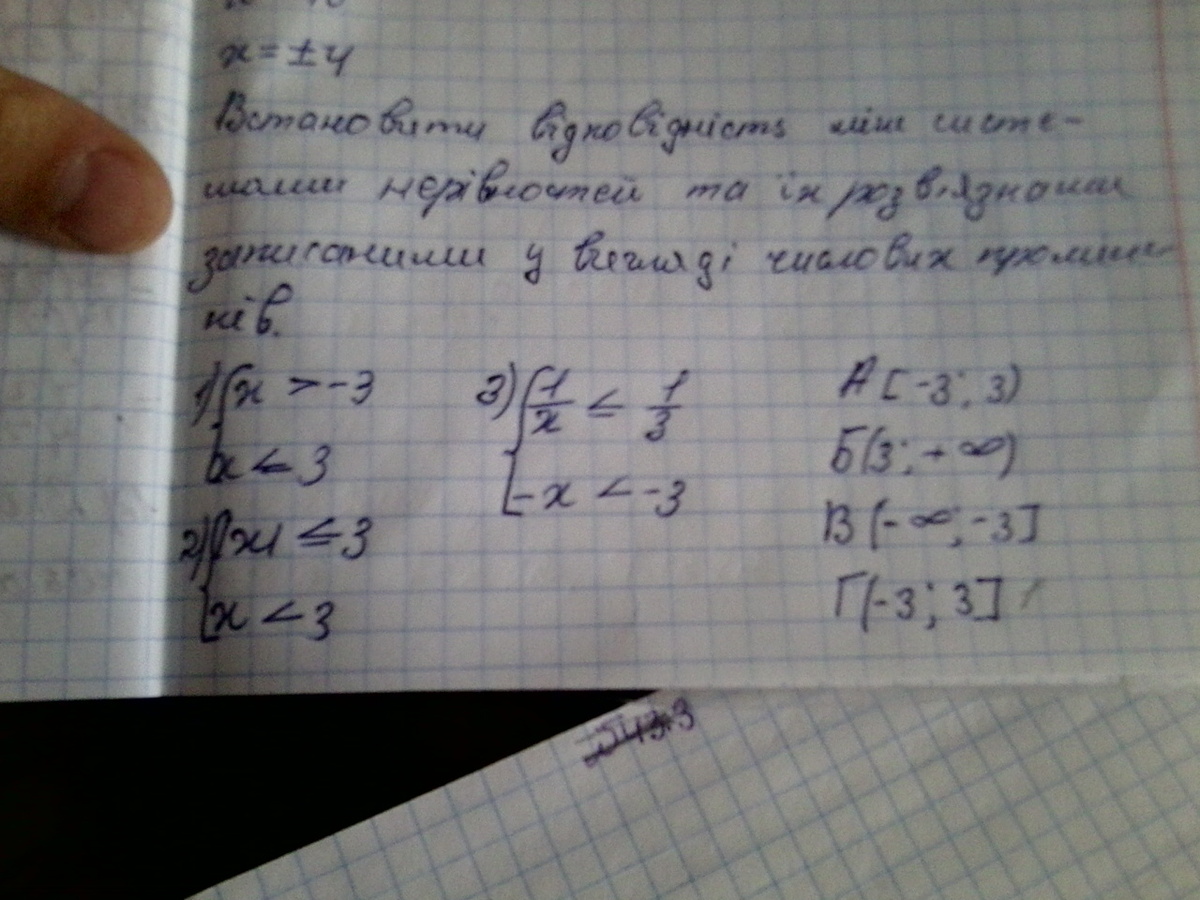 x = ±4
Встановити відповідність між систе-
мами нерівностей та їх розв'язками
записаними у вигляді числових промін-
нів.
1) { x > -3
x ≤ 3
2) { |x| ≤ 3
x < 3
3) { 1/x ≤ 1/3
-x < -3
А [-3; 3)
Б (3; +∞)
В (-∞; -3]
Г (-3; 3]